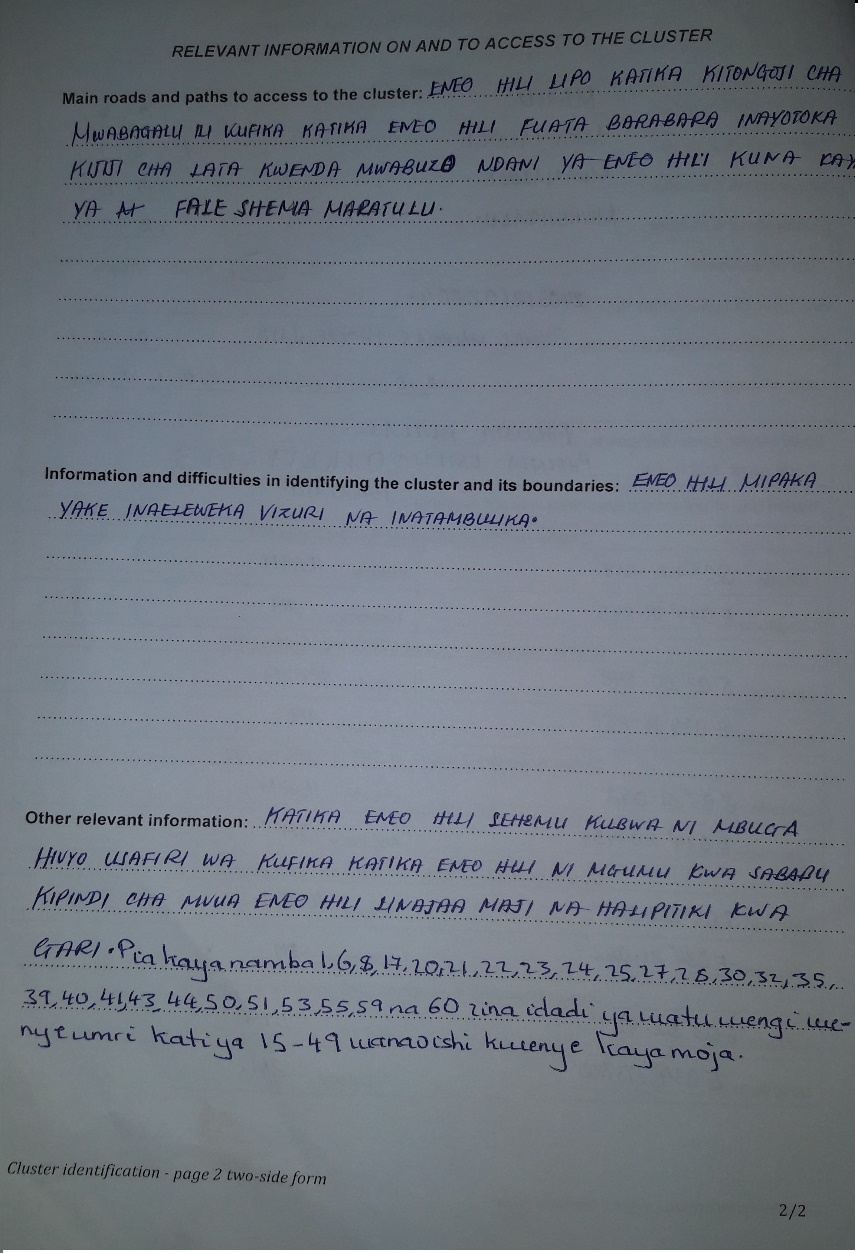 RELEVANT INFORMATION ON AND TO ACCESS TO THE CLUSTER
Main roads and paths to access to the cluster: ENEO HILI LIPO KATIKA KITONGOJI CHA
MWABAGALU ILI KUFIKA KATIKA ENEO HILI FUATA BARABARA INAYOTOKA
KIJIJI CHA LATA KWENDA MWABUZO NDANI YA ENEO HILI KUNA KAY
YA FALE SHEMA MARATULU.
Information and difficulties in identifying the cluster and its boundaries: ENEO HILI MIPAKA
YAKE INAELEWEKA VIZURI NA INATAMBULIKA.
Other relevant information: KATIKA ENEO HILI SEHEMU KUBWA NI MBUGA
HIVYO USAFIRI WA KUFIKA KATIKA ENEO HILI NI MGUMU KWA SABABU
KIPINDI CHA MVUA ENEO HILI LINAJAA MAJI NA HALIPITIKI KWA
GARI. Pia kaya namba 1,6,8,17,20,21,22,23,24,25,27,28,30,32,35,
39,40,41,43,44,50,51,53,55,59 na 60 zina idadi ya watu wengi we-
nye umri kati ya 15-49 wanaoishi kwenye kaya moja.
Cluster identification - page 2 two-side form
2/2